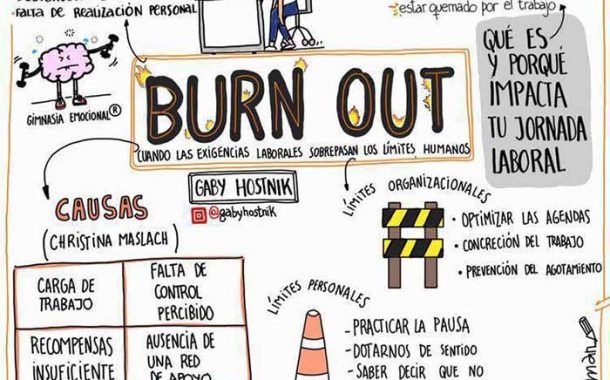 FALTA DE REALIZACIÓN PERSONAL
estar quemado por el trabajo
GIMNASIA EMOCIONAL®
BURN OUT
CUANDO LAS EXIGENCIAS LABORALES SOBREPASAN LOS LÍMITES HUMANOS
QUÉ ES
Y PORQUÉ
IMPACTA
TU JORNADA
LABORAL
GABY HOSTNIK
@gabyhostnik
CAUSAS
(CHRISTINA MASLACH)
CARGA DE
TRABAJO
FALTA DE
CONTROL
PERCIBIDO
RECOMPENSAS
INSUFICIENTE
AUSENCIA DE
UNA RED
DE APOYO
LÍMITES ORGANIZACIONALES
• OPTIMIZAR LAS AGENDAS
• CONCRECIÓN DEL TRABAJO
• PREVENCIÓN DEL AGOTAMIENTO
LÍMITES PERSONALES
- PRACTICAR LA PAUSA
- DOTARNOS DE SENTIDO
- SABER DECIR QUE NO